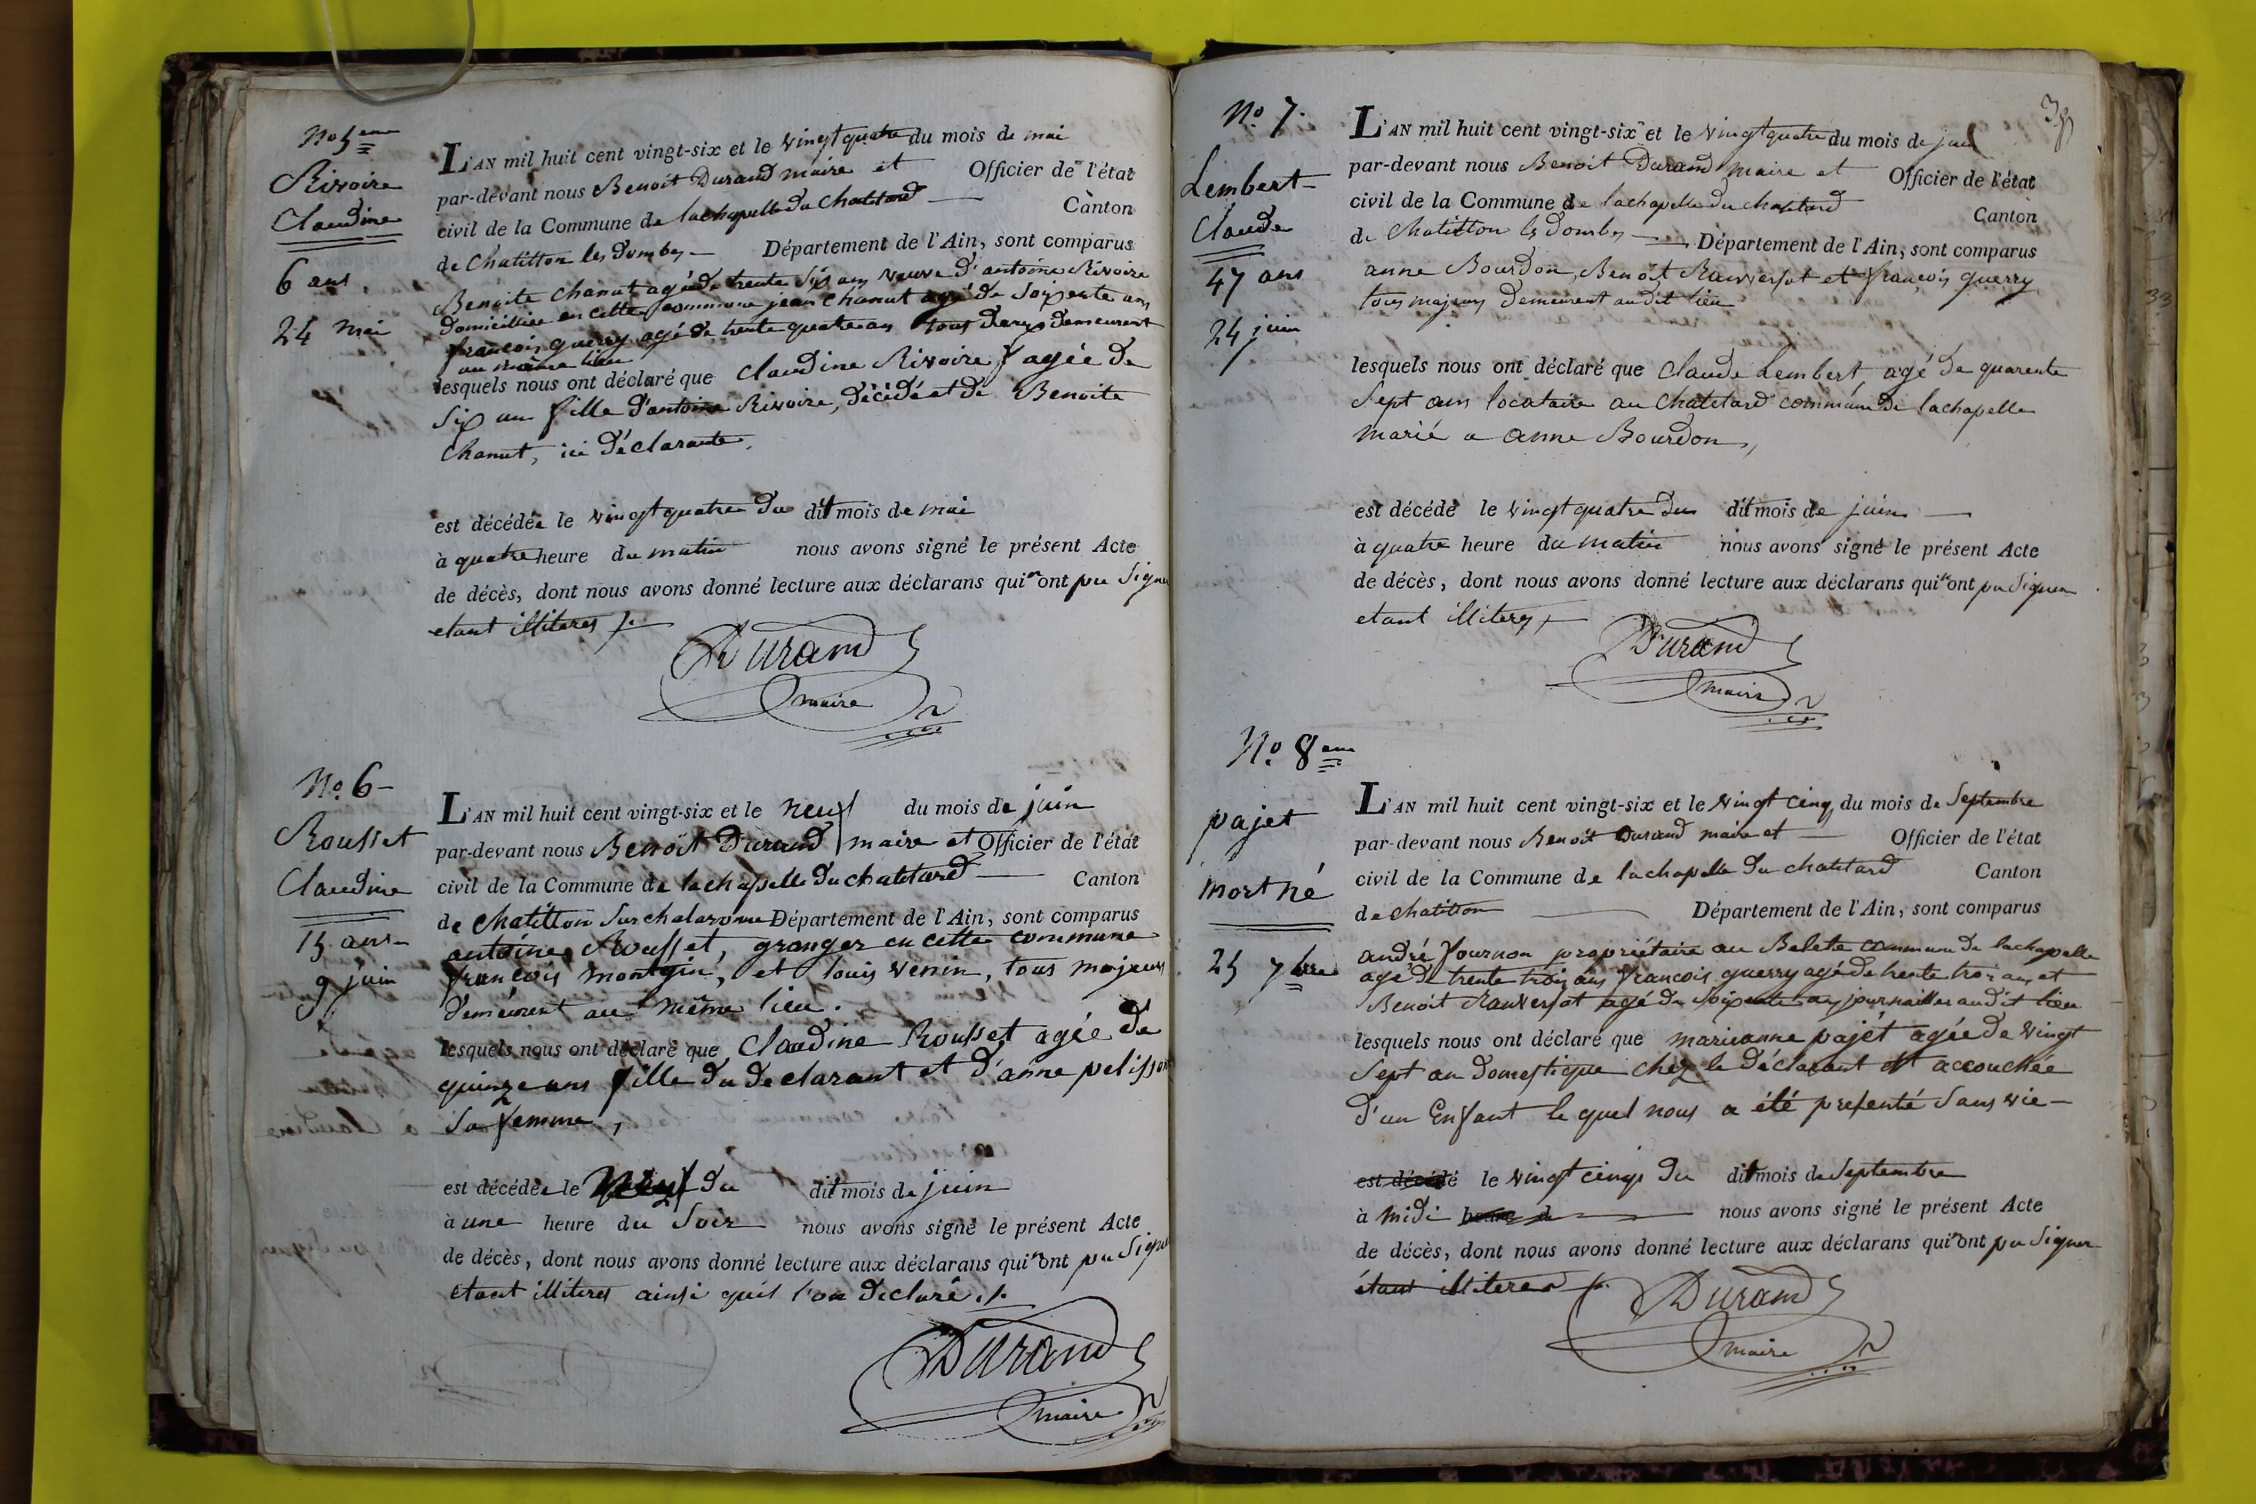 No 5eme
Rivoire
Claudine
6 ans
24 mai
L'AN mil huit cent vingt-six et le vingt quatre du mois de mai
par-devant nous Benoit Durand maire et Officier de l'état
civil de la Commune de lachapelle du chatelard Canton
de Chatillon les dombes Département de l'Ain, sont comparus
Benoite Chanut agée de trente six ans veuve d'antoine Rivoire
domiciliée en cette commune jean Chanut agé de soixente ans
françois guerry agé de trente quatre ans tous deux demeurent
au même lieu
lesquels nous ont déclaré que Claudine Rivoire agée de
Six an fille d'antoine Rivoire, décédé et de Benoite
Chanut, ici déclarante,
est décédée le vingt quatre du dit mois de mai
à quatre heure du matin nous avons signé le présent Acte
de décès, dont nous avons donné lecture aux déclarans qui n'ont pu Signer
etant illiteres
Durand
maire
No 6
Rousset
Claudine
15 ans
9 juin
L'AN mil huit cent vingt-six et le neuf du mois de juin
par-devant nous Benoit Durand maire et Officier de l'état
civil de la Commune de lachapelle du chatelard Canton
de Chatillon Sur chalaronne Département de l'Ain, sont comparus
antoine Rousset, granger en cette commune
françois montgin, et louis venin, tous majeurs
demeurent au même lieu.
lesquels nous ont déclaré que Claudine Rousset agée de
quinze ans fille du declarant et d'anne pelisson
Sa femme,
est décédée le neuf du dit mois de juin
à une heure du Soir nous avons signé le présent Acte
de décès, dont nous avons donné lecture aux déclarans qui n'ont pu Signer
etant illiteres ainsi quil l'on declaré
Durand
maire
No 7.
Lembert
Claude
47 ans
24 juin
L'AN mil huit cent vingt-six et le vingt quatre du mois de juin
par-devant nous Benoit Durand maire et Officier de l'état
civil de la Commune de lachapelle du chatelard Canton
de Chatillon les dombes Département de l'Ain, sont comparus
anne Bourdon, Benoit Rauversot et françois guerry
tous majeurs demeurent audit lieu
lesquels nous ont déclaré que Claude Lembert, agé de quarente
Sept ans locataire au Chatelard commune de lachapelle
marié a anne Bourdon,
est décédé le vingt quatre du dit mois de juin
à quatre heure du matin nous avons signé le présent Acte
de décès, dont nous avons donné lecture aux déclarans qui n'ont pu Signer
etant illiteres
Durand
maire
No 8eme
pajet
mort né
25 7bre
L'AN mil huit cent vingt-six et le vingt cinq du mois de Septembre
par-devant nous Benoit Durand maire et Officier de l'état
civil de la Commune de lachapelle du chatelard Canton
de chatillon Département de l'Ain, sont comparus
andré fournon propriétaire au Belete commune de lachapelle
agé de trente trois ans françois guerry agé de trente trois ans et
Benoit Rauversot agé de soixente ans journaillier audit lieu
lesquels nous ont déclaré que marieanne pajét agée de vingt
Sept an domestique chez le déclarant est accouchée
d'un Enfant le quel nous a été presenté Sans vie
est décédé le vingt cinq du dit mois de Septembre
à midi heure d nous avons signé le présent Acte
de décès, dont nous avons donné lecture aux déclarans qui n'ont pu Signer
étant illiteres
Durand
maire
33